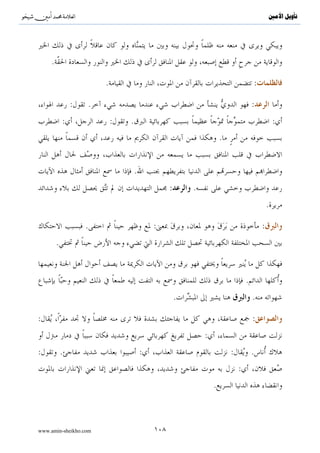 تأويل الأمين
العلامة محمد أمين شيخو
ويبكي ويرى في منعه منه ظلماً وتحول بينه وبين ما يتمنَّاه ولو كان عاقلاً لرأى في ذلك الخير
والوقاية من جرح أو قطع إصبعه، ولو عقل المنافق لرأى في ذلك الخير والنور والسعادة الحقَّة.
فالظلمات: تتضمن التحذيرات بالقرآن من الموت، النار وما في القيامة.
وأما الرعد: فهو الدويُّ ينشأ من اضطراب شيء عندما يصدمه شيء آخر. تقول: رعد الهواء،
أي: اضطرب متموِّجاً تموِّجاً عظيماً بسبب كهربائية البرق. وتقول: رعد الرجل، أي: اضطرب
بسبب خوفه من أمرٍ ما. وهكذا فمن آيات القرآن الكريم ما فيه رعد، أي أن قسماً منها يلقي
الاضطراب في قلب المنافق بسبب ما يسمعه من الإنذارات بالعذاب، ووصْف لحال أهل النار
واضطرابهم فيها وحسرتهم على الدنيا بتفريطهم بجنب الله. فإذا ما سمع المنافق أمثال هذه الآيات
رعد واضطرب وخشي على نفسه. والرعد: مجمل التهديدات إن لم تتَّق يحصل لك بلاء وشدائد
مريرة.
والبرق: مأخوذة من بَرَقَ وهو لمعان، وبرق بمعنى: لمع وظهر حيناً ثم اختفى. فبسبب الاحتكاك
بين السحب المختلفة الكهربائية تحصل تلك الشرارة التي تضيء وجه الأرض حيناً ثم تختفي.
فهكذا كل ما يُنير سريعاً ويختفي فهو برق ومن الآيات الكريمة ما يصف أحوال أهل الجنة ونعيمها
وأكلها الدائم. فإذا ما برق ذلك للمنافق وسمع به التفت إليه طمعاً في ذلك النعيم وحبّاً بإشباع
شهواته منه. والبرق هنا يشير إلى المبشِّرات.
والصواعق: جمع صاعقة، وهي كل ما يفاجئك بشدة فلا ترى منه مخلصاً ولا تجد مفرّاً، يُقال:
نزلت صاعقة من السماء، أي: حصل تفريغ كهربائي سريع وشديد فكان سبباً في دمار منزل أو
هلاك أُناس. ويُقال: نزلت بالقوم صاعقة العذاب، أي: أصيبوا بعذاب شديد مفاجئ. وتقول:
صُعق فلان، أي: نزل به موت مفاجئ وشديد، وهكذا فالصواعق إنما تعني الإنذارات بالموت
وانقضاء هذه الدنيا السريع.
www.amin-sheikho.com
١٠٨